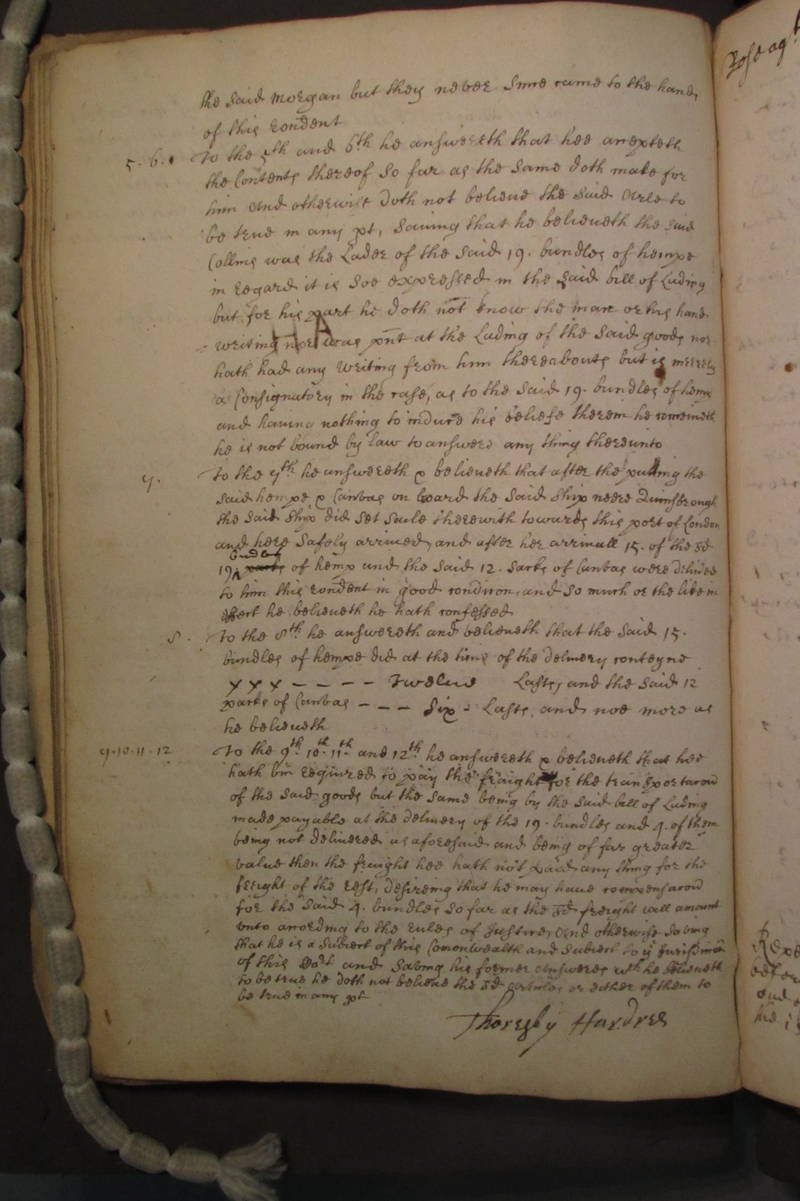 the said Morgan but they never since came to the hands
of this rondent
5. 6. To the 5th and 6th he answereth that hee accepteth
the Contents thereof so far as the same doth make for
him and otherwise doth not believe the said Arles to
be true in any pt, saving that he believeth the said
Collins was the Lader of the said 19. bundles of hempe
in regard it is soe expressed in the said bill of Lading
but for his part he doth not know the man or his hand
writing nor was pnt at the Lading of the said goods nor
hath had any writing from him thereabouts but is meerely
a Consignatory in the case, as to the said 19. bundles of hempe
and having nothing to induce his beliefe therein he conceiveth
he is not bound by law to answere any thing thereunto
7. To the 7th he answereth & believeth that after the putting the
said hempe & Canvas on board the said ship neere Quinsbrough
the said ship did set saile therewith towards this port of London
and here safely arrived, and after her arrivall 15. of the sd
19 bundles of hemp and the said 12. packs of Canvas were delivred
to him this rondent in good condicon, and so much or the like in
effect he believeth he hath confessed
8. To the 8th he answereth and believeth that the said 15.
bundles of hempe did at the time of the delivery conteyne
x x x - - - - Twelve Lasts, and the said 12
packs of Canvas - - - Six - Lasts and noe more as
he believeth
9. 10. 11. 12 To the 9th 10th 11th and 12th he answereth & believeth that hee
hath bin required to pay the fraight for the transportacon
of the said goods but the same being by the said bill of Lading
made payable at the delivery of the 19. bundles and 4. of them
being not delivered as aforesaid and being of far greater
value then the freight hee hath not paid any thing for the
freight of the rest, desireing that he may have compensacon
for the said 4. bundles so far as the sd freight will amount
unto according to the rules of Justice, and otherwise saving
that he is a subiect of this Comonwealth and subiect to ye Jurisdiction
of this Cort and saving his former answeres wch he believeth
to be true he doth not believe the sd articles or either of them to
be true in any pt
Thoresby Hardres